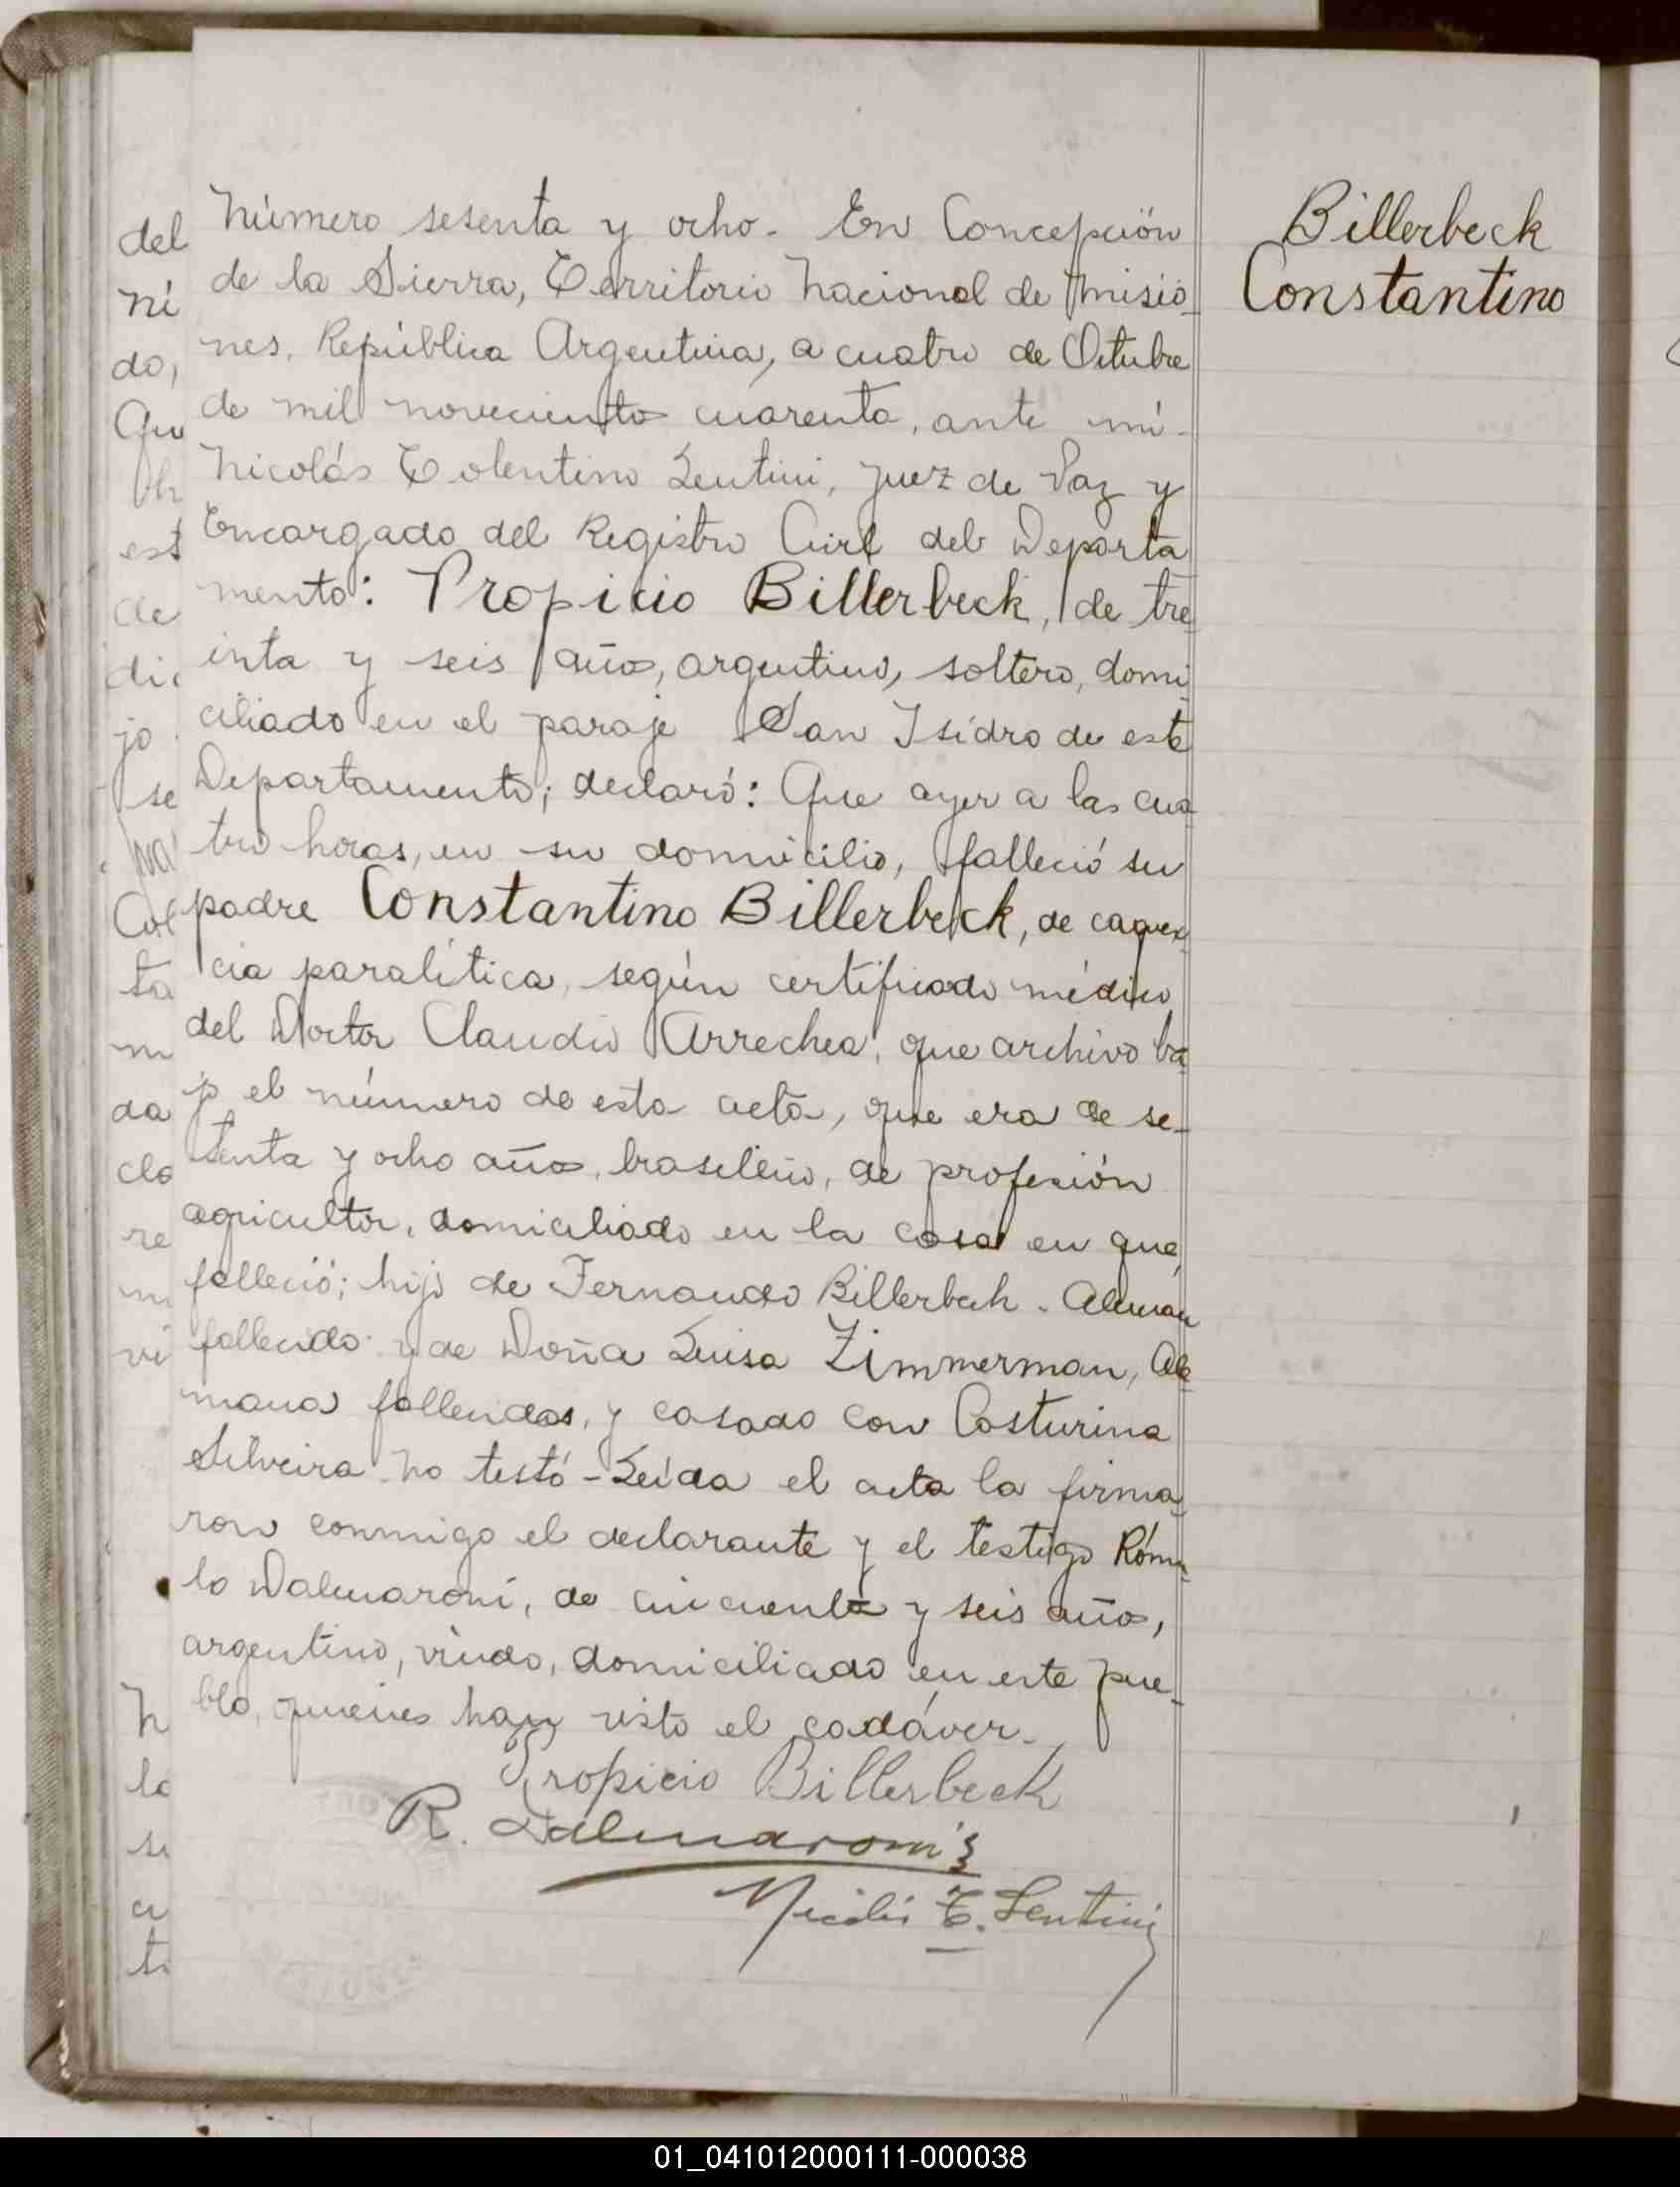 Número sesenta y ocho. En Concepción
de la Sierra, Territorio Nacional de Misio-
nes, República Argentina, a cuatro de Octubre
de mil novecientos cuarenta, ante mí-
Nicolás Tolentino Lentini, Juez de Paz y
Encargado del Registro Civil del Departa
mento: Propicio Billerbeck, de tre-
inta y seis años, argentino, soltero, domi-
ciliado en el paraje San Isidro de este
Departamento; declaró: Que ayer a las cua
tro horas, en su domicilio, falleció su
padre Constantino Billerbeck, de caquex-
cia paralítica, según certificado médico
del Doctor Claudio Arrechea, que archivo ba-
jo el número de esta acta, que era de se-
tenta y ocho años, brasileño, de profesión
agricultor, domiciliado en la casa en que
falleció; hijo de Fernando Billerbeck. Alemán
fallecido y de Doña Luisa Zimmerman, Ale-
mana fallecidos, y casado con Casturina
Silveira no testó-Leída el acta la firma-
ron conmigo el declarante y el testigo Rómu-
lo Dalmaroni, de cincuenta y seis años,
argentino, viudo, domiciliado en este pue-
blo, quienes han visto el cadáver.
Propicio Billerbeck
R. Dalmaroni
Nicolás T. Lentini
Billerbeck
Constantino
del
ni
do,
Qu
est
de
di
jo
se
Col
ta
m
da
cla
re
vi
N
la
01_041012000111-000038